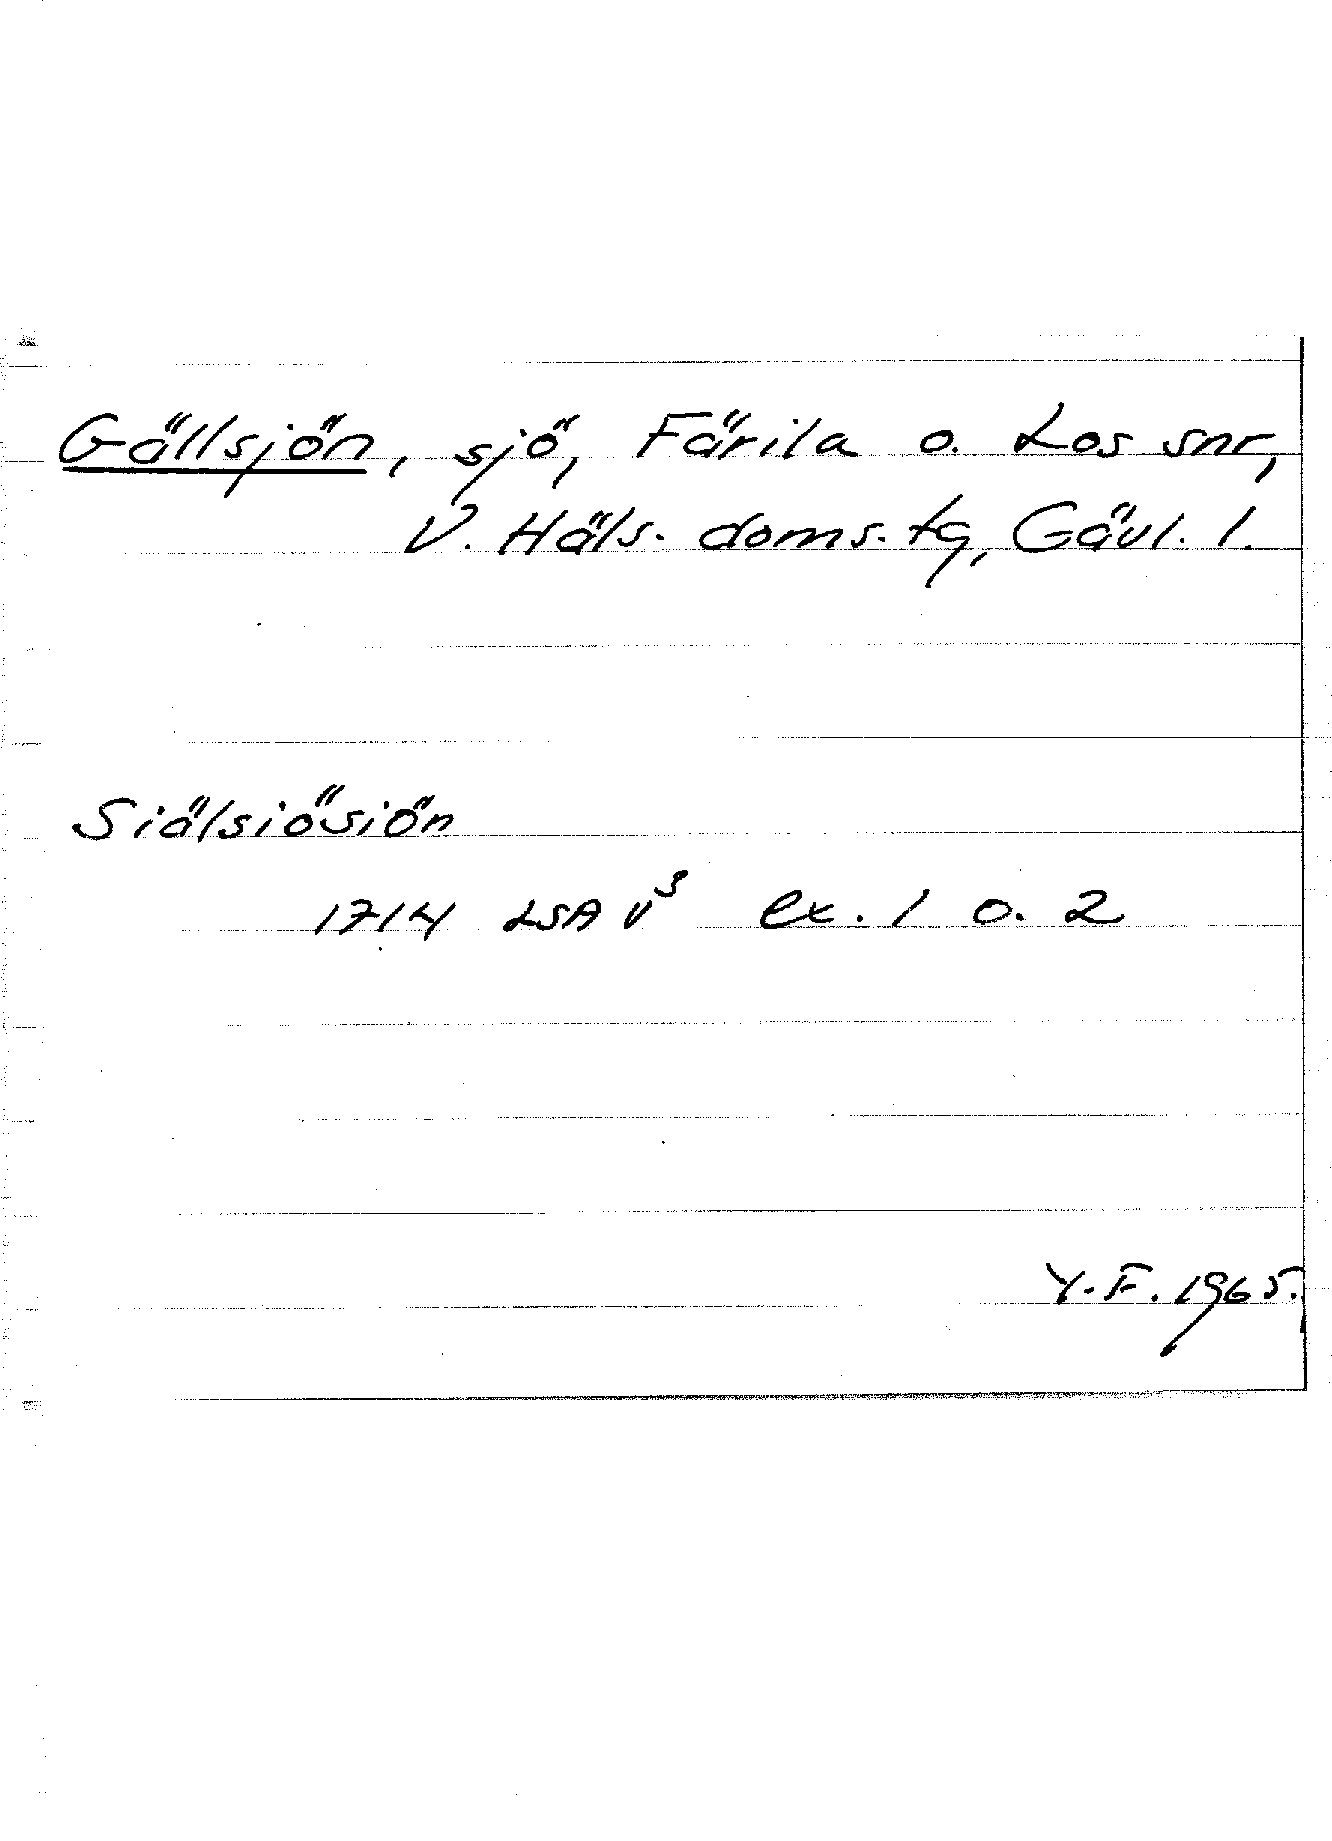 Gällsjön, sjö, Färila o. Los snr,
V. Häls. doms. tg, Gävl. l.
Siälsiösiön
1714 LSA V³ ex. 1 o. 2
Y. F. 1965.